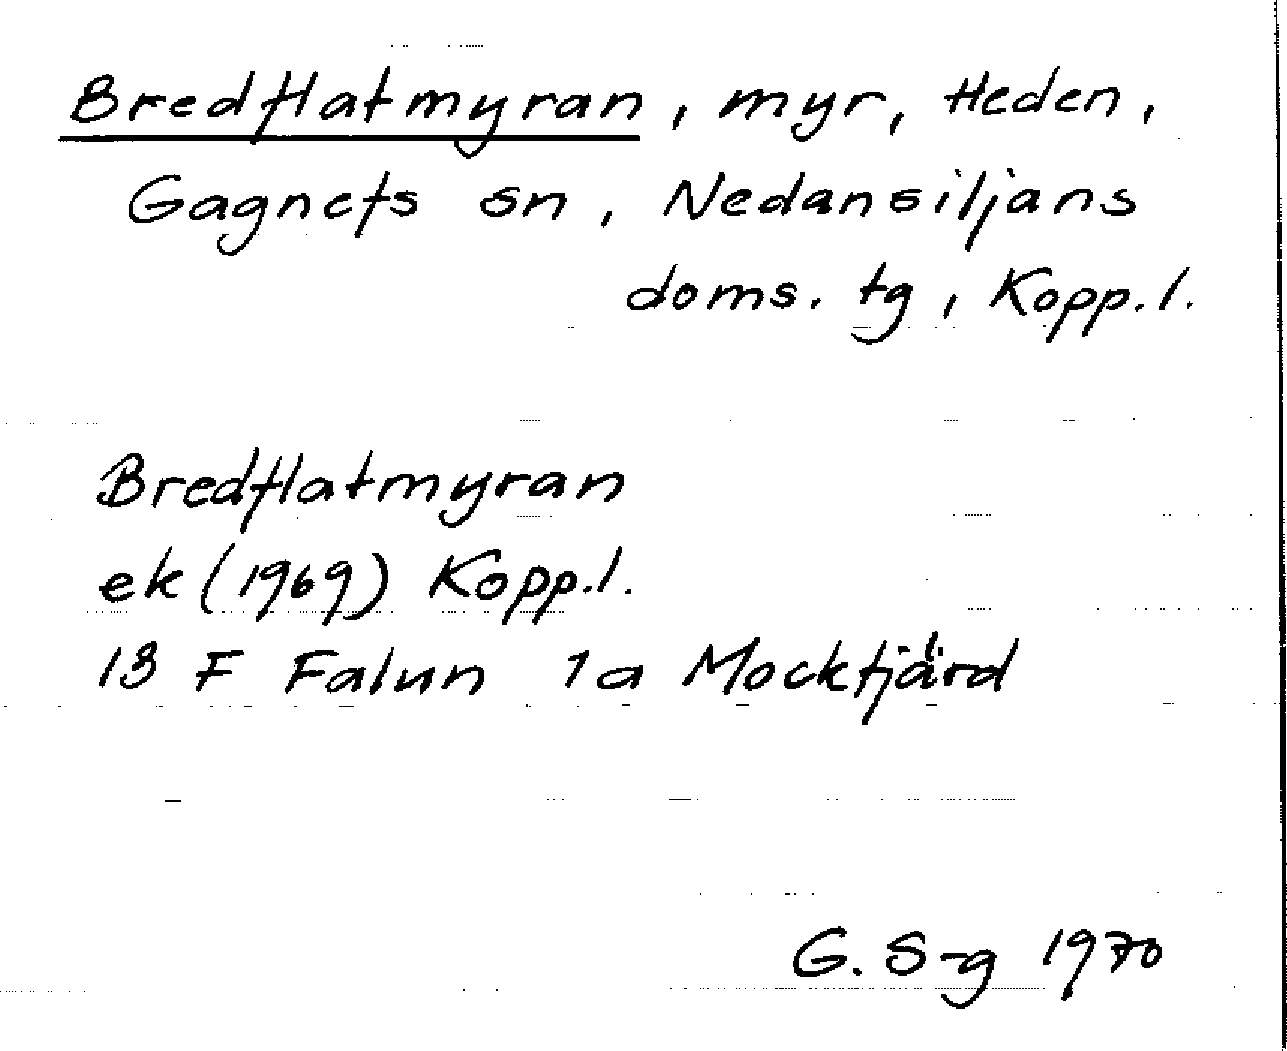 Bredflatmyran, myr, Heden,
Gagnefs sn, Nedansiljans
doms. tg, Kopp.l.
Bredflatmyran
ek (1969) Kopp.l.
13 F Falun 1a Mockfjärd
G. S-g 1970